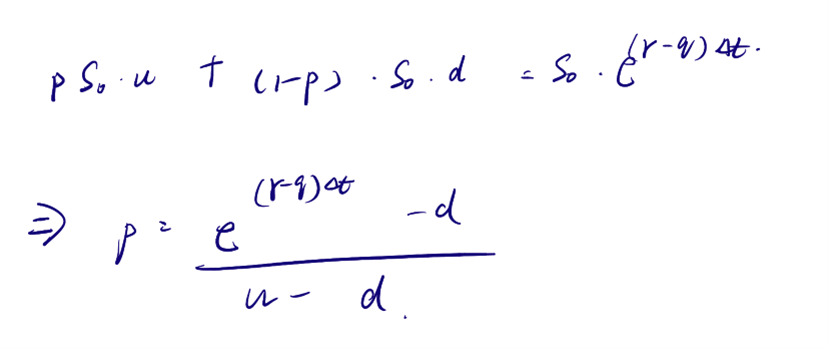 p S₀ · u + (1-p) · S₀ · d = S₀ · e^{(r-q) Δt}.
⇒ p = \frac{e^{(r-q)Δt} - d}{u - d}.